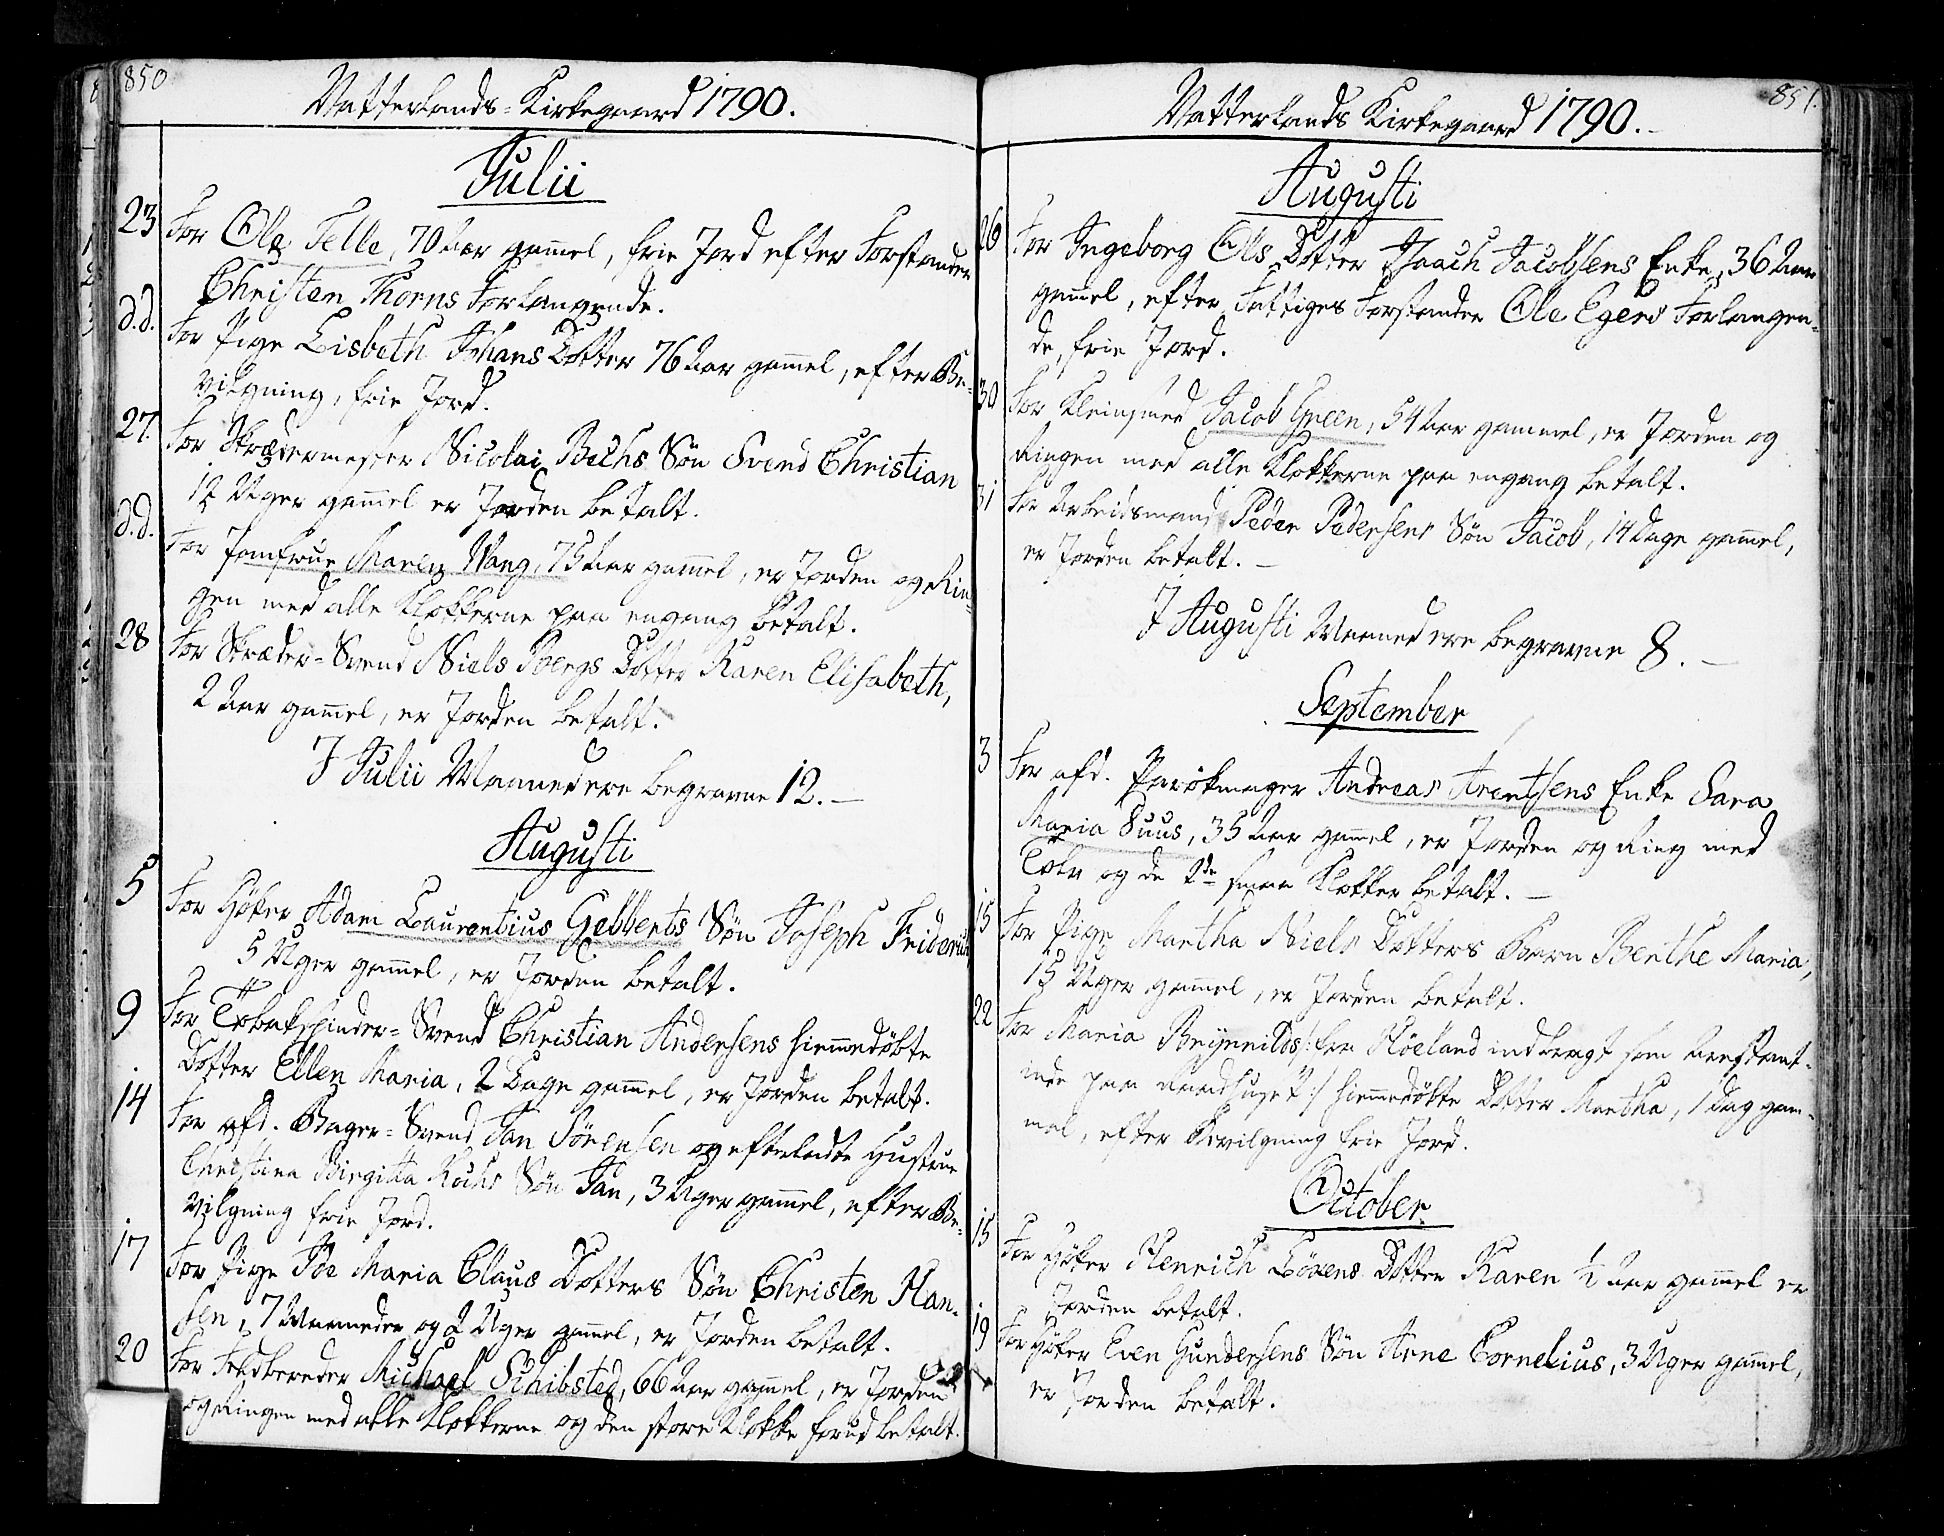 850
Vatterlands-Kirkegaard 1790.
Julii
23 For Ole Telle, 70 Aar gam̄el, frie Jord efter Forstander
Christen Thorns Forlangende.
d.d. For Pige Lisbeth Johans Dotter 76 Aar gam̄el, efter Be-
vilgning, frie Jord.
27. For Skrædermester Nicolai Bechs Søn Svend Christian
12 Uger gam̄el er Jorden betalt.
d.d. For Jomfrue Maren Wang, 75 Aar gam̄el, er Jorden og Rin-
gen med alle Klokkerne paa engang betalt.
28 For Skræder-Svend Niels Bergs Dotter Karen Elisabeth,
2 Aar gam̄el, er Jorden betalt.
I Julii Maaned ere begravne 12.
Augusti
5 For Høker Adam Laurentius Gebberts Søn Joseph Friderich
5 Uger gam̄el, er Jorden betalt.
9 For Tobakspinder-Svend Christian Andersens hiem̄edøbte
Dotter Ellen Maria, 2 Dage gam̄el, er Jorden betalt.
14 For afd. Bager-Svend Jan Sörensen og efterladte Hustrue
Christina Birgitta Kochs Søn Jan, 3 Uger gam̄el, efter Be-
vilgning frie Jord.
17 For Pige Ide Maria Claus Dotters Søn Christen Han-
sen, 7 Maaneder og 2 Uger gam̄el, er Jorden betalt.
20 For Feldbereder Michael Schibsted, 66 Aar gam̄el, er Jorden
og Ringen med alle Klokkerne og den store Klokke forud betalt.
851.
Vatterlands Kirkegaard 1790.
Augusti
26 For Ingeborg Ols Dotter Isaach Jacobsens Enke, 36 Aar
gam̄el, efter Fattiges Forstander Ole Egers Forlangen-
de, frie Jord.
30 For Kleinsmed Jacob Green, 54 Aar gammel, er Jorden og
Ringen med alle Klokkerne paa engang betalt.
31 For Arbeidsmand Peder Pedersens Søn Jacob, 14 Dage gam̄el,
er Jorden betalt.
I Augusti Maaned ere begravne 8.
September
3 For afd. Parükmager Andreas Arentsens Enke Sara
Maria Buus, 35 Aar gam̄el, er Jorden og Ring med
Tolv og de 2de smaa Klokker betalt.
15 For Pige Martha Niels Dotters Barn Berthe Maria,
15 Uger gam̄el, er Jorden betalt.
22 For Maria Brynnilds /: fra Höeland indbragt som Arrestant-
inde paa Raadhuset :/ hiem̄edøbte Dotter Martha, 1 Dag gam-
mel, efter Bevilgning frie Jord.
October
15 For Høker Henrich Lövens Dotter Karen ½ Aar gam̄el er
Jorden betalt.
19 For Høker Even Gundersens Søn Arne Cornelius, 3 Uger gam̄el,
er Jorden betalt.